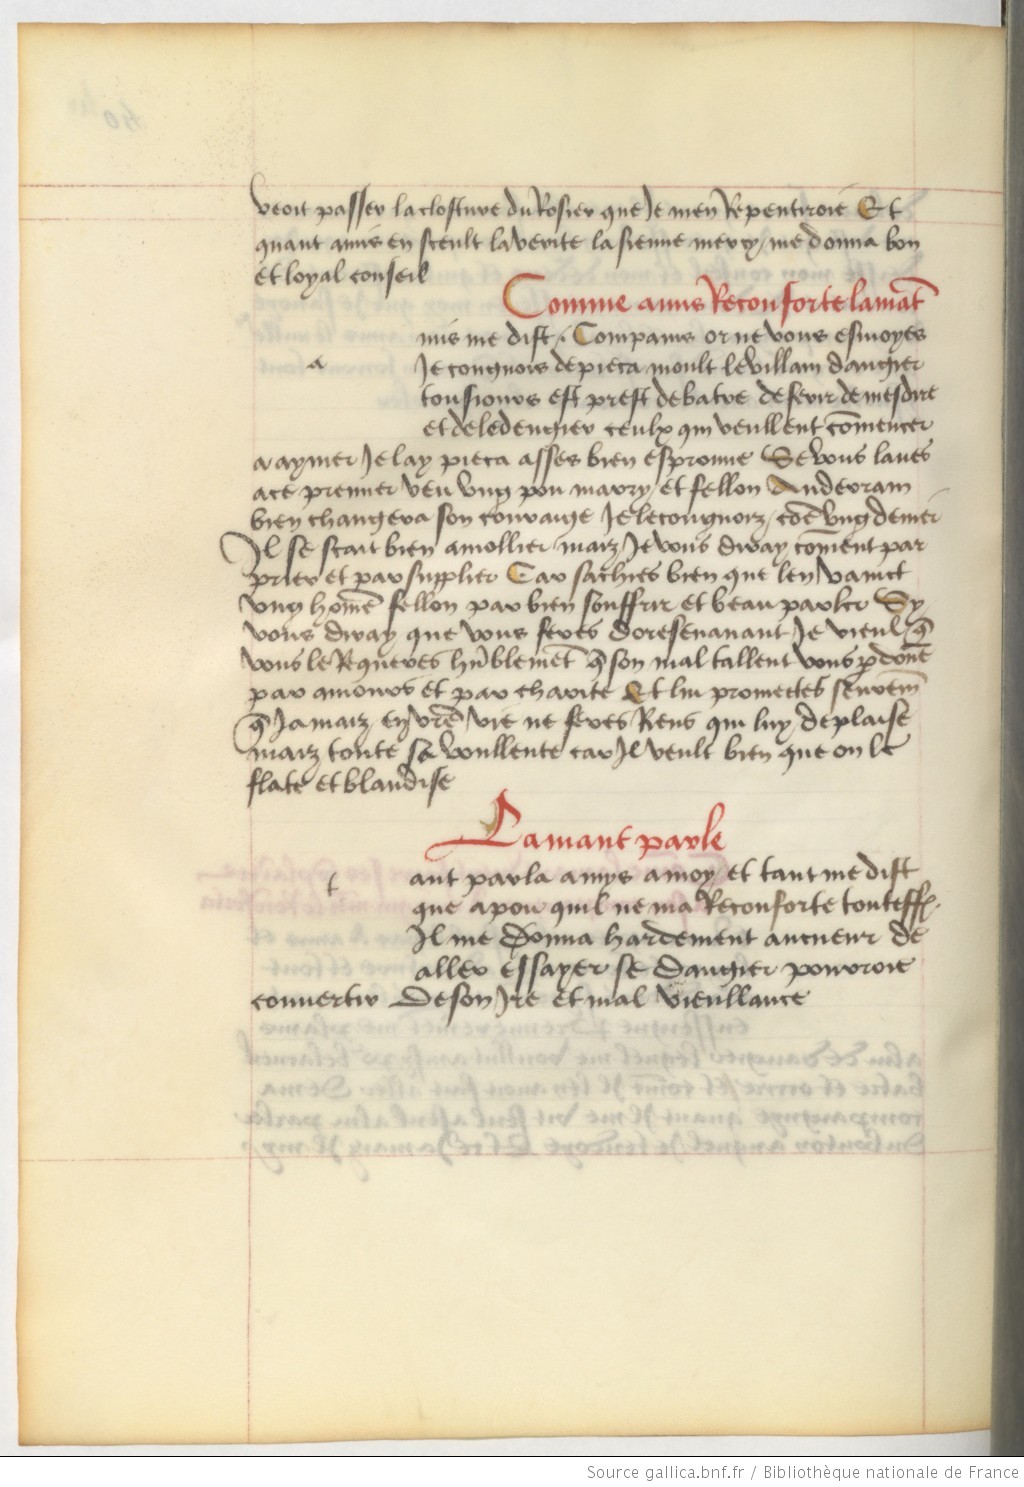 veoit passer la closture du Rosier que Je men Repentiroie Et
quant amis en sceult la verite la sienne mercy / me donna bon
et loyal conseil
Comme amis Reconforte lamāt
mis me dist / Compains or ne vous esmoyes
a
Je congnois de pieca moult le villain dangier
tousiours est prest de batre de ferir de mesdire
et de ledengier ceulx qui veullent cōmencer
a aymer Je lay pieca asses bien esprouue Se vous laues
a ce premier veu vng pou marry / et fellon Au derrain
bien changera son couraige Je le congnoiz / cōe vng denier
Il se scait bien amollier / maiz / Je vous diray cōment par
prier et par supplier Car sachies bien que len vainct
vng hom̄e fellon par bien souffrir et beau parler Sy
vous diray que vous feres doresenauant Je vieul / q̄
vous le Requeres hūblemēt q̄ son mal tallent vous p̱donē
par amours et par charite Et lui promectes seurem̄
q̄ Ja maiz en vrē vie ne feres Rens qui luy deplaise
maiz toute sa voullente car Il veult bien que on le
flate et blandise
Lamant parle
ant parla amys a moy / et tant me dist
t
que a pou quil ne ma Reconforte touteff.
Il me donna hardement aucueur de
aller essayer se Dangier pourroie
conuertir De son Ire et mal vieullance
Source gallica.bnf.fr / Bibliothèque nationale de France